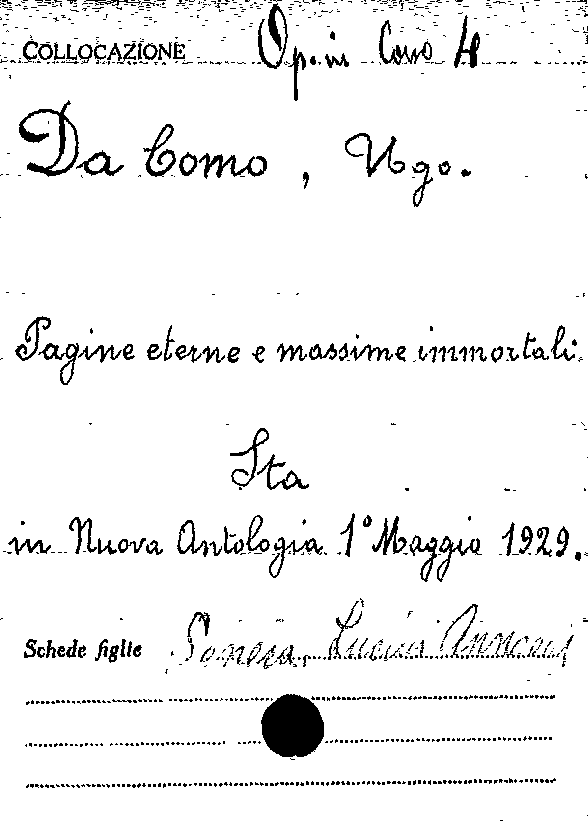 COLLOCAZIONE Op. in Como 4
Da Como, Ugo.
Pagine eterne e massime immortali.
Sta
in Nuova Antologia 1° Maggio 1929.
Schede figlie Seneca, Lucius Annaeus